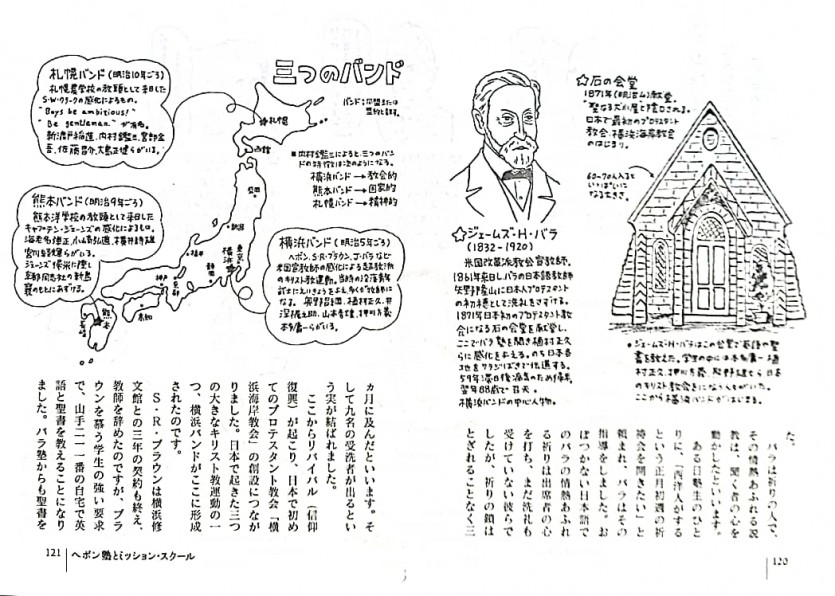 ☆石の会堂
1871年(明治4)献堂。
"聖なる犬小屋"と陰口される。
日本で最初のプロテスタント
教会・横浜海岸教会
のはじまり。
60〜70人入ると
いっぱいに
なる大きさ。
☆ジェームズ・H・バラ
(1832-1920)
米国改革派教会宣教師。
1861年来日しバラの日本語教師
矢野隆山に日本人プロテスタント
の初穂として洗礼をさずける。
1871年日本初のプロテスタント教
会になる石の会堂を献堂し、
ここでバラ塾を開き植村正久
らに感化を与える。のち日本各
地をワラジばきで伝道する。
59年滞日後病気のため帰米、
翌年88歳で召天。
横浜バンドの中心人物。
・ジェームズ・H・バラはこの会堂で英語や聖
書を教えた。学生の中には本多庸一・植
村正久、押川方義、熊野雄七ら日本
のキリスト教会をになう人々がいた。
ここから横浜バンドがはじまる。
た。
バラは祈りの人で、
その情熱あふれる説
教は、聞く者の心を
動かしたといいます。
ある日塾生のひと
りに、「西洋人がする
という正月初週の祈
祷会を開きたい」と
頼まれ、バラはその
指導をしました。お
ぼつかない日本語で
のバラの情熱あふれ
る祈りは出席者の心
を打ち、まだ洗礼も
受けていない彼らで
したが、祈りの鎖は
とぎれることなく三
120
三つのバンド
バンド:同盟または
盟約と訳す。
札幌バンド(明治10年ごろ)
札幌農学校の教頭として来日した
S・W・クラークの感化によるもの。
"Boys be ambitious!"
"Be gentleman"が有名。
新渡戸稲造、内村鑑三、宮部金
吾、佐藤昌介、大島正健らがいる。
■内村鑑三によると、三つのバン
ドの特徴は次のようになる。
横浜バンド→教会的
熊本バンド→国家的
札幌バンド→精神的
熊本バンド(明治9年ごろ)
熊本洋学校の教頭として来日した
キャプテン・ジェーンズの感化によるもの。
海老名弾正、小崎弘道、横井時雄
ジェーンズ帰米に際し
京都同志社の新島
襄のもとにあずける。
横浜バンド(明治5年ごろ)
ヘボン、S・R・ブラウン、J・バラなど
米国宣教師の感化による超教派
のキリスト教運動。
なる。奥野昌綱、植村正久、井
深梶之助、山本秀煌、押川方義
本多庸一らがいる。
札幌
函館
新潟
東京
横浜
静岡
神戸
京都
高知
熊本
長崎
ヵ月に及んだといいます。そ
して九名の受洗者が出るとい
う実が結ばれました。
ここからリバイバル(信仰
復興)が起こり、日本で初め
てのプロテスタント教会「横
浜海岸教会」の創設につなが
りました。日本で起きた三つ
の大きなキリスト教運動の一
つ、横浜バンドがここに形成
されたのです。
S・R・ブラウンは横浜修
文館との三年の契約も終え、
教師を辞めたのですが、ブラ
ウンを慕う学生の強い要求
で、山手二一一番の自宅で英
語と聖書を教えることになり
ました。バラ塾からも聖書を
121 ヘボン塾とミッション・スクール